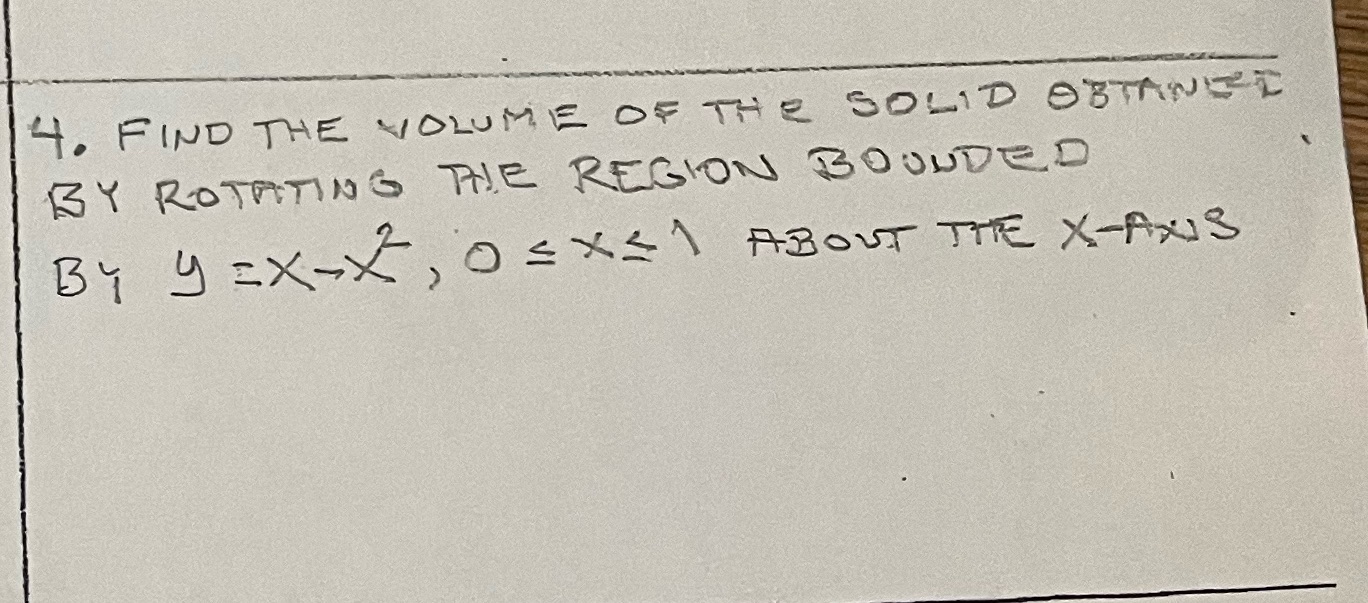 4. FIND THE VOLUME OF THE SOLID OBTANED
BY ROTATING THE REGION BOUNDED
BY y = x - x², 0 ≤ x ≤ 1 ABOUT THE X-AXIS